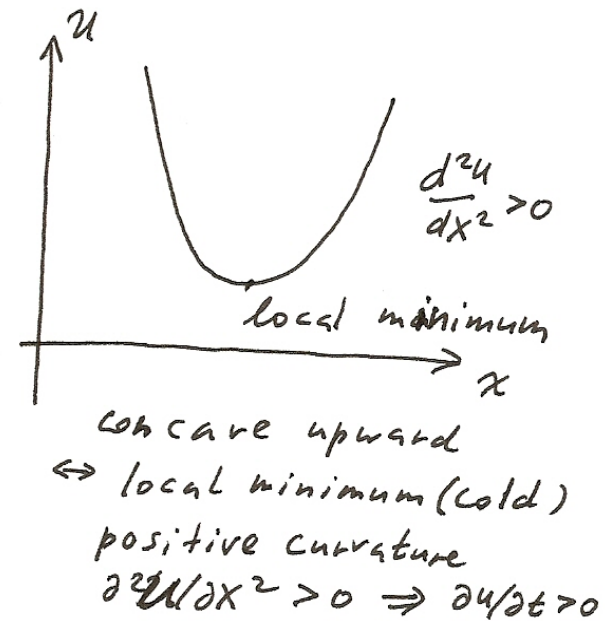 u
d²u/dx² >0
local minimum
x
concave upward
⇔ local minimum (cold)
positive curvature
∂²u/∂x² > 0 ⇒ ∂u/∂t>0